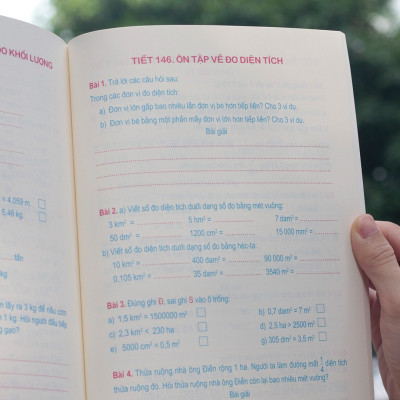 ĐO KHỐI LƯỢNG
= 4,059 m
6,46 kg
tấn
kg
lấy ra 3 kg để nấu cơm
1 kg. Hỏi người đầu bếp
gạo?
TIẾT 146. ÔN TẬP VỀ ĐO DIỆN TÍCH
Bài 1. Trả lời các câu hỏi sau:
Trong các đơn vị đo diện tích:
a) Đơn vị lớn gấp bao nhiêu lần đơn vị bé hơn tiếp liền? Cho 3 ví dụ.
b) Đơn vị bé bằng một phần mấy đơn vị lớn hơn tiếp liền? Cho 3 ví dụ.
Bài giải
Bài 2. a) Viết số đo diện tích dưới dạng số đo bằng mét vuông:
3 km² = 5 hm² = 7 dam² =
50 dm² = 1200 cm² = 15 000 mm² =
b) Viết số đo diện tích dưới dạng số đo bằng héc-ta:
10 km² = 400 dam² = 90 000 m² =
0,105 km² = 35 dam² = 3540 m² =
Bài 3. Đúng ghi Đ, sai ghi S vào ô trống:
a) 1,5 km² = 1500000 m² b) 0,7 dam² = 7 m²
c) 2,3 km² < 230 ha d) 2,5 ha > 2500 m²
e) 5000 cm² = 0,5 m² g) 305 dm² = 3,5 m²
Bài 4. Thửa ruộng nhà ông Điền rộng 1 ha. Người ta làm đường mất 1/4 diện tích
thửa ruộng đó. Hỏi thửa ruộng nhà ông Điền còn lại bao nhiêu mét vuông?
Bài giải